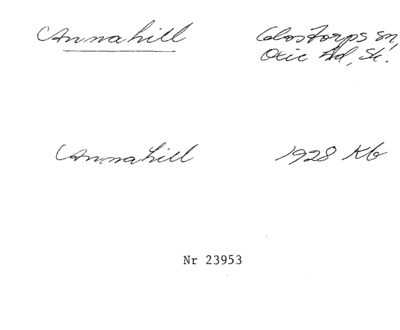 Annahill Glostorps sn,
Oxie hd, Sk.
Annahill 1928 Kb
Nr 23953